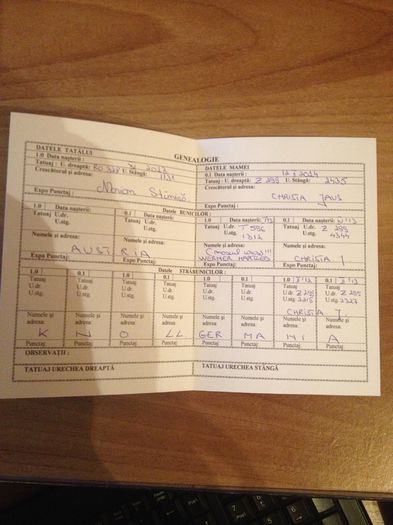 GENEALOGIE
DATELE TATĂLUI
1.0 Data nașterii :
Tatuaj : U. dreaptă: RO U. Stângă:
Crescătorul și adresa:
Marian Stănică
Expo Punctaj :
DATELE MAMEI
0.1 Data nașterii :
Tatuaj : U. dreaptă: Z 285 U. Stângă: 2435
Crescătorul și adresa:
CHRISTA JAUS
Expo Punctaj :
Datele BUNICILOR :
1.0 Data nașterii:
Tatuaj U.dr.
U.stg.
Numele și adresa:
Expo Punctaj:
0.1 Data nașterii:
Tatuaj U.dr.
U.stg.
Numele și adresa:
Expo Punctaj:
AUSTRIA
1.0 Data nașterii:
Tatuaj U.dr. T 596
U.stg. 1312
Numele și adresa:
WERNER
Expo Punctaj:
0.1 Data nașterii:
Tatuaj U.dr. Z 285
U.stg.
Numele și adresa:
CHRISTA J
Expo Punctaj:
Datele STRABUNICILOR :
1.0 0.1 1.0 0.1 1.0 0.1 1.0 0.1
Tatuaj Tatuaj Tatuaj Tatuaj Tatuaj Tatuaj Tatuaj Tatuaj
U.dr. U.dr. U.dr. U.dr. U.dr. U.dr. U.dr. Z 285 U.dr. Z 285
U.stg. U.stg. U.stg. U.stg. U.stg. U.stg. U.stg. U.stg.
CHRISTA J
Numele și adresa: Numele și adresa: Numele și adresa: Numele și adresa: Numele și adresa: Numele și adresa: Numele și adresa: Numele și adresa:
K N O LL GER MA NI A
Punctaj Punctaj Punctaj Punctaj Punctaj Punctaj Punctaj Punctaj
OBSERVAȚII :
TATUAJ URECHEA DREAPTĂ
TATUAJ URECHEA STÂNGĂ